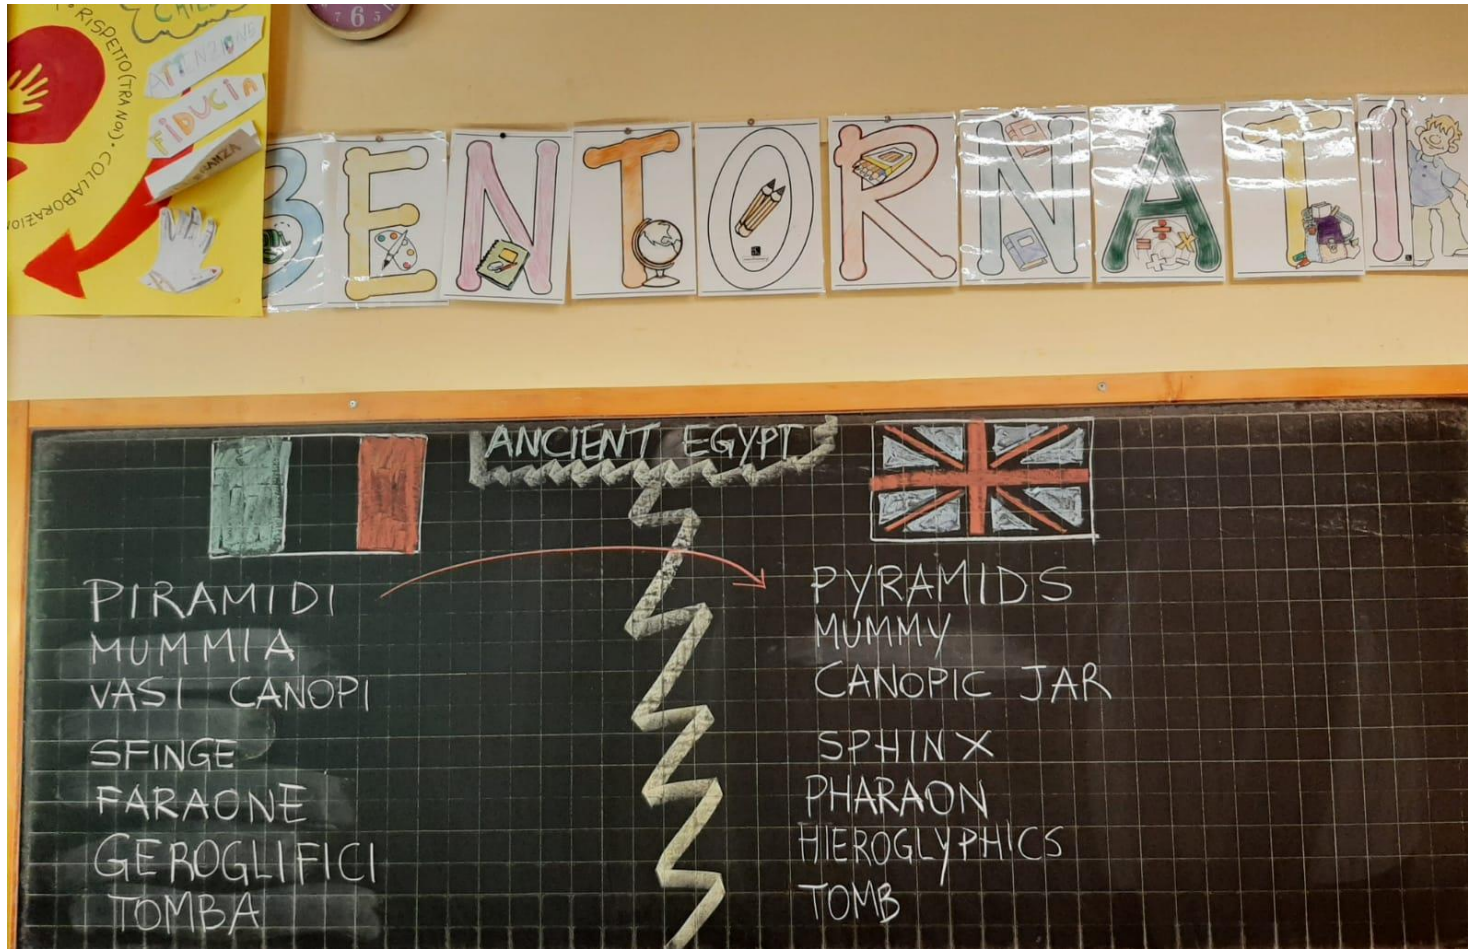 6
RISPETTO (TRA NOI) • COLLABORAZION
ATTENZIONE
FIDUCIA
BENTORNATI
ANCIENT EGYPT
PIRAMIDI
MUMMIA
VASI CANOPI
SFINGE
FARAONE
GEROGLIFICI
TOMBA
PYRAMIDS
MUMMY
CANOPIC JAR
SPHINX
PHARAON
HIEROGLYPHICS
TOMB